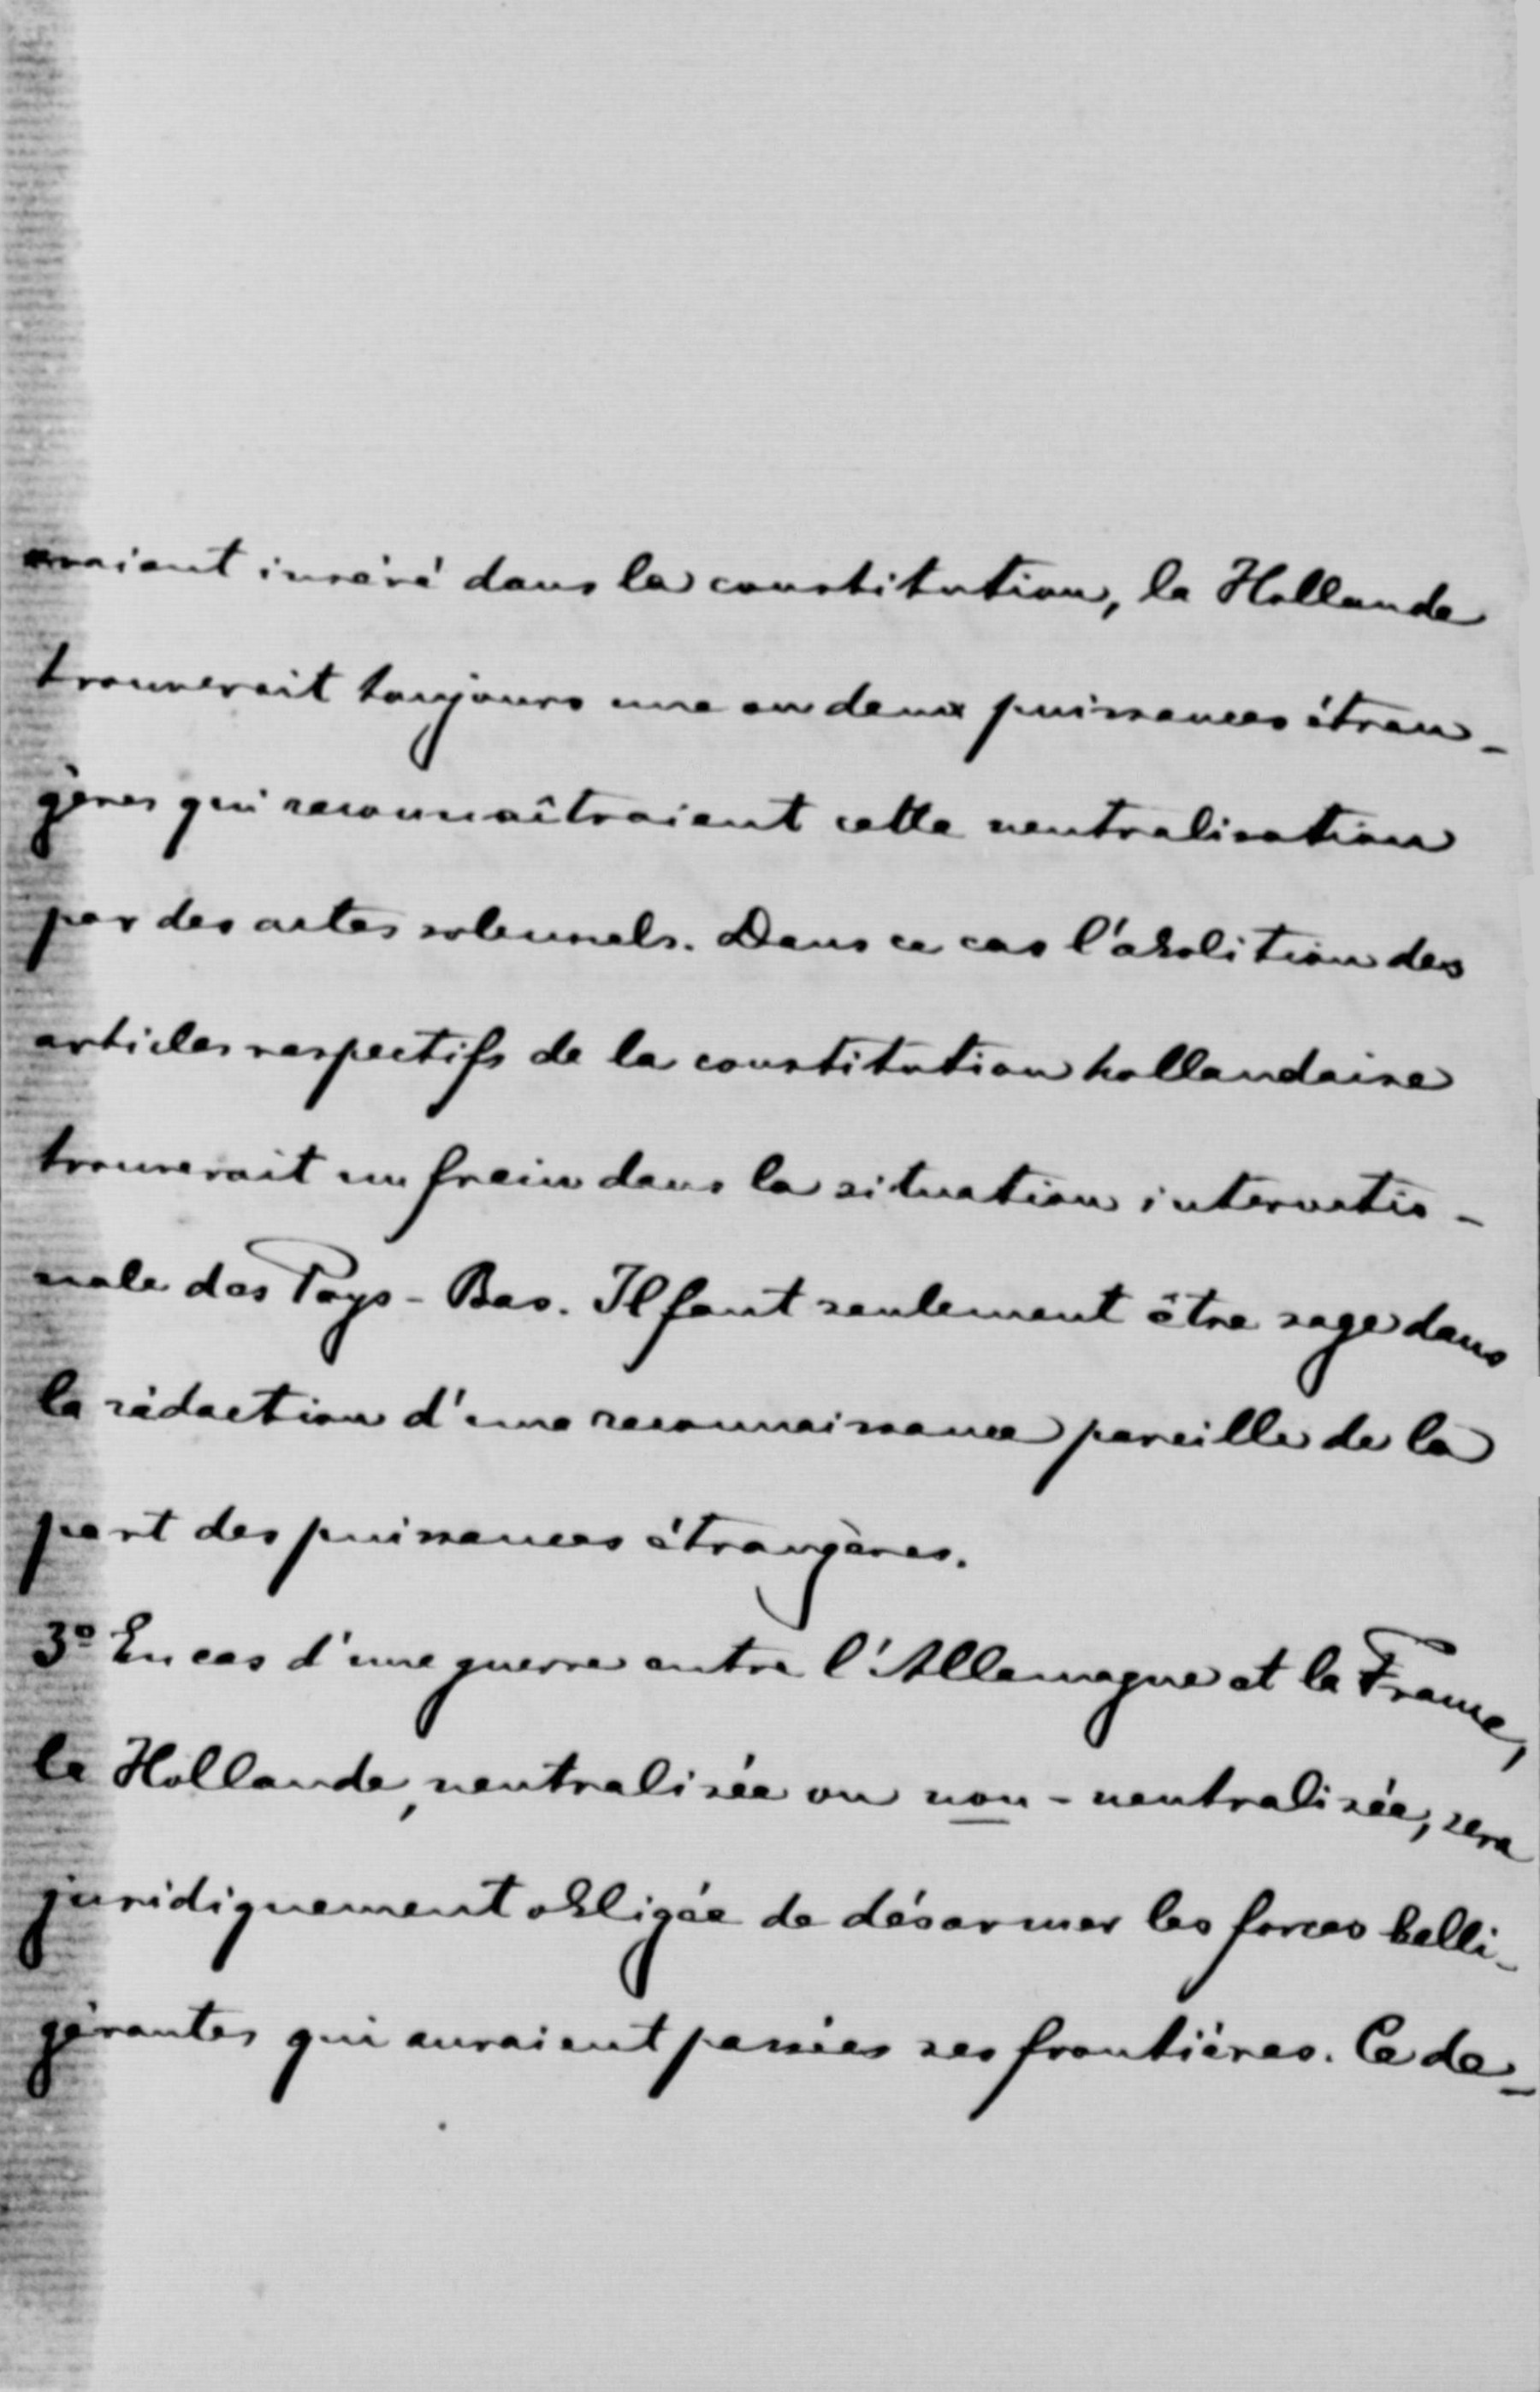 avaient inséré dans la constitution, la Hollande
trouverait toujours une ou deux puissances étran-
gères qui reconnaîtraient cette neutralisation
par des actes solennels. Dans ce cas l'abolition des
articles respectifs de la constitution hollandaise
trouverait un frein dans la situation internatio-
nale des Pays-Bas. Il faut seulement être sage dans
la rédaction d'une reconnaissance pareille de la
part des puissances étrangères.
3º En cas d'une guerre entre l'Allemagne et la France,
la Hollande, neutralisée ou non-neutralisée, sera
juridiquement obligée de désarmer les forces belli-
gérantes qui auraient passées ses frontières. Ce de-